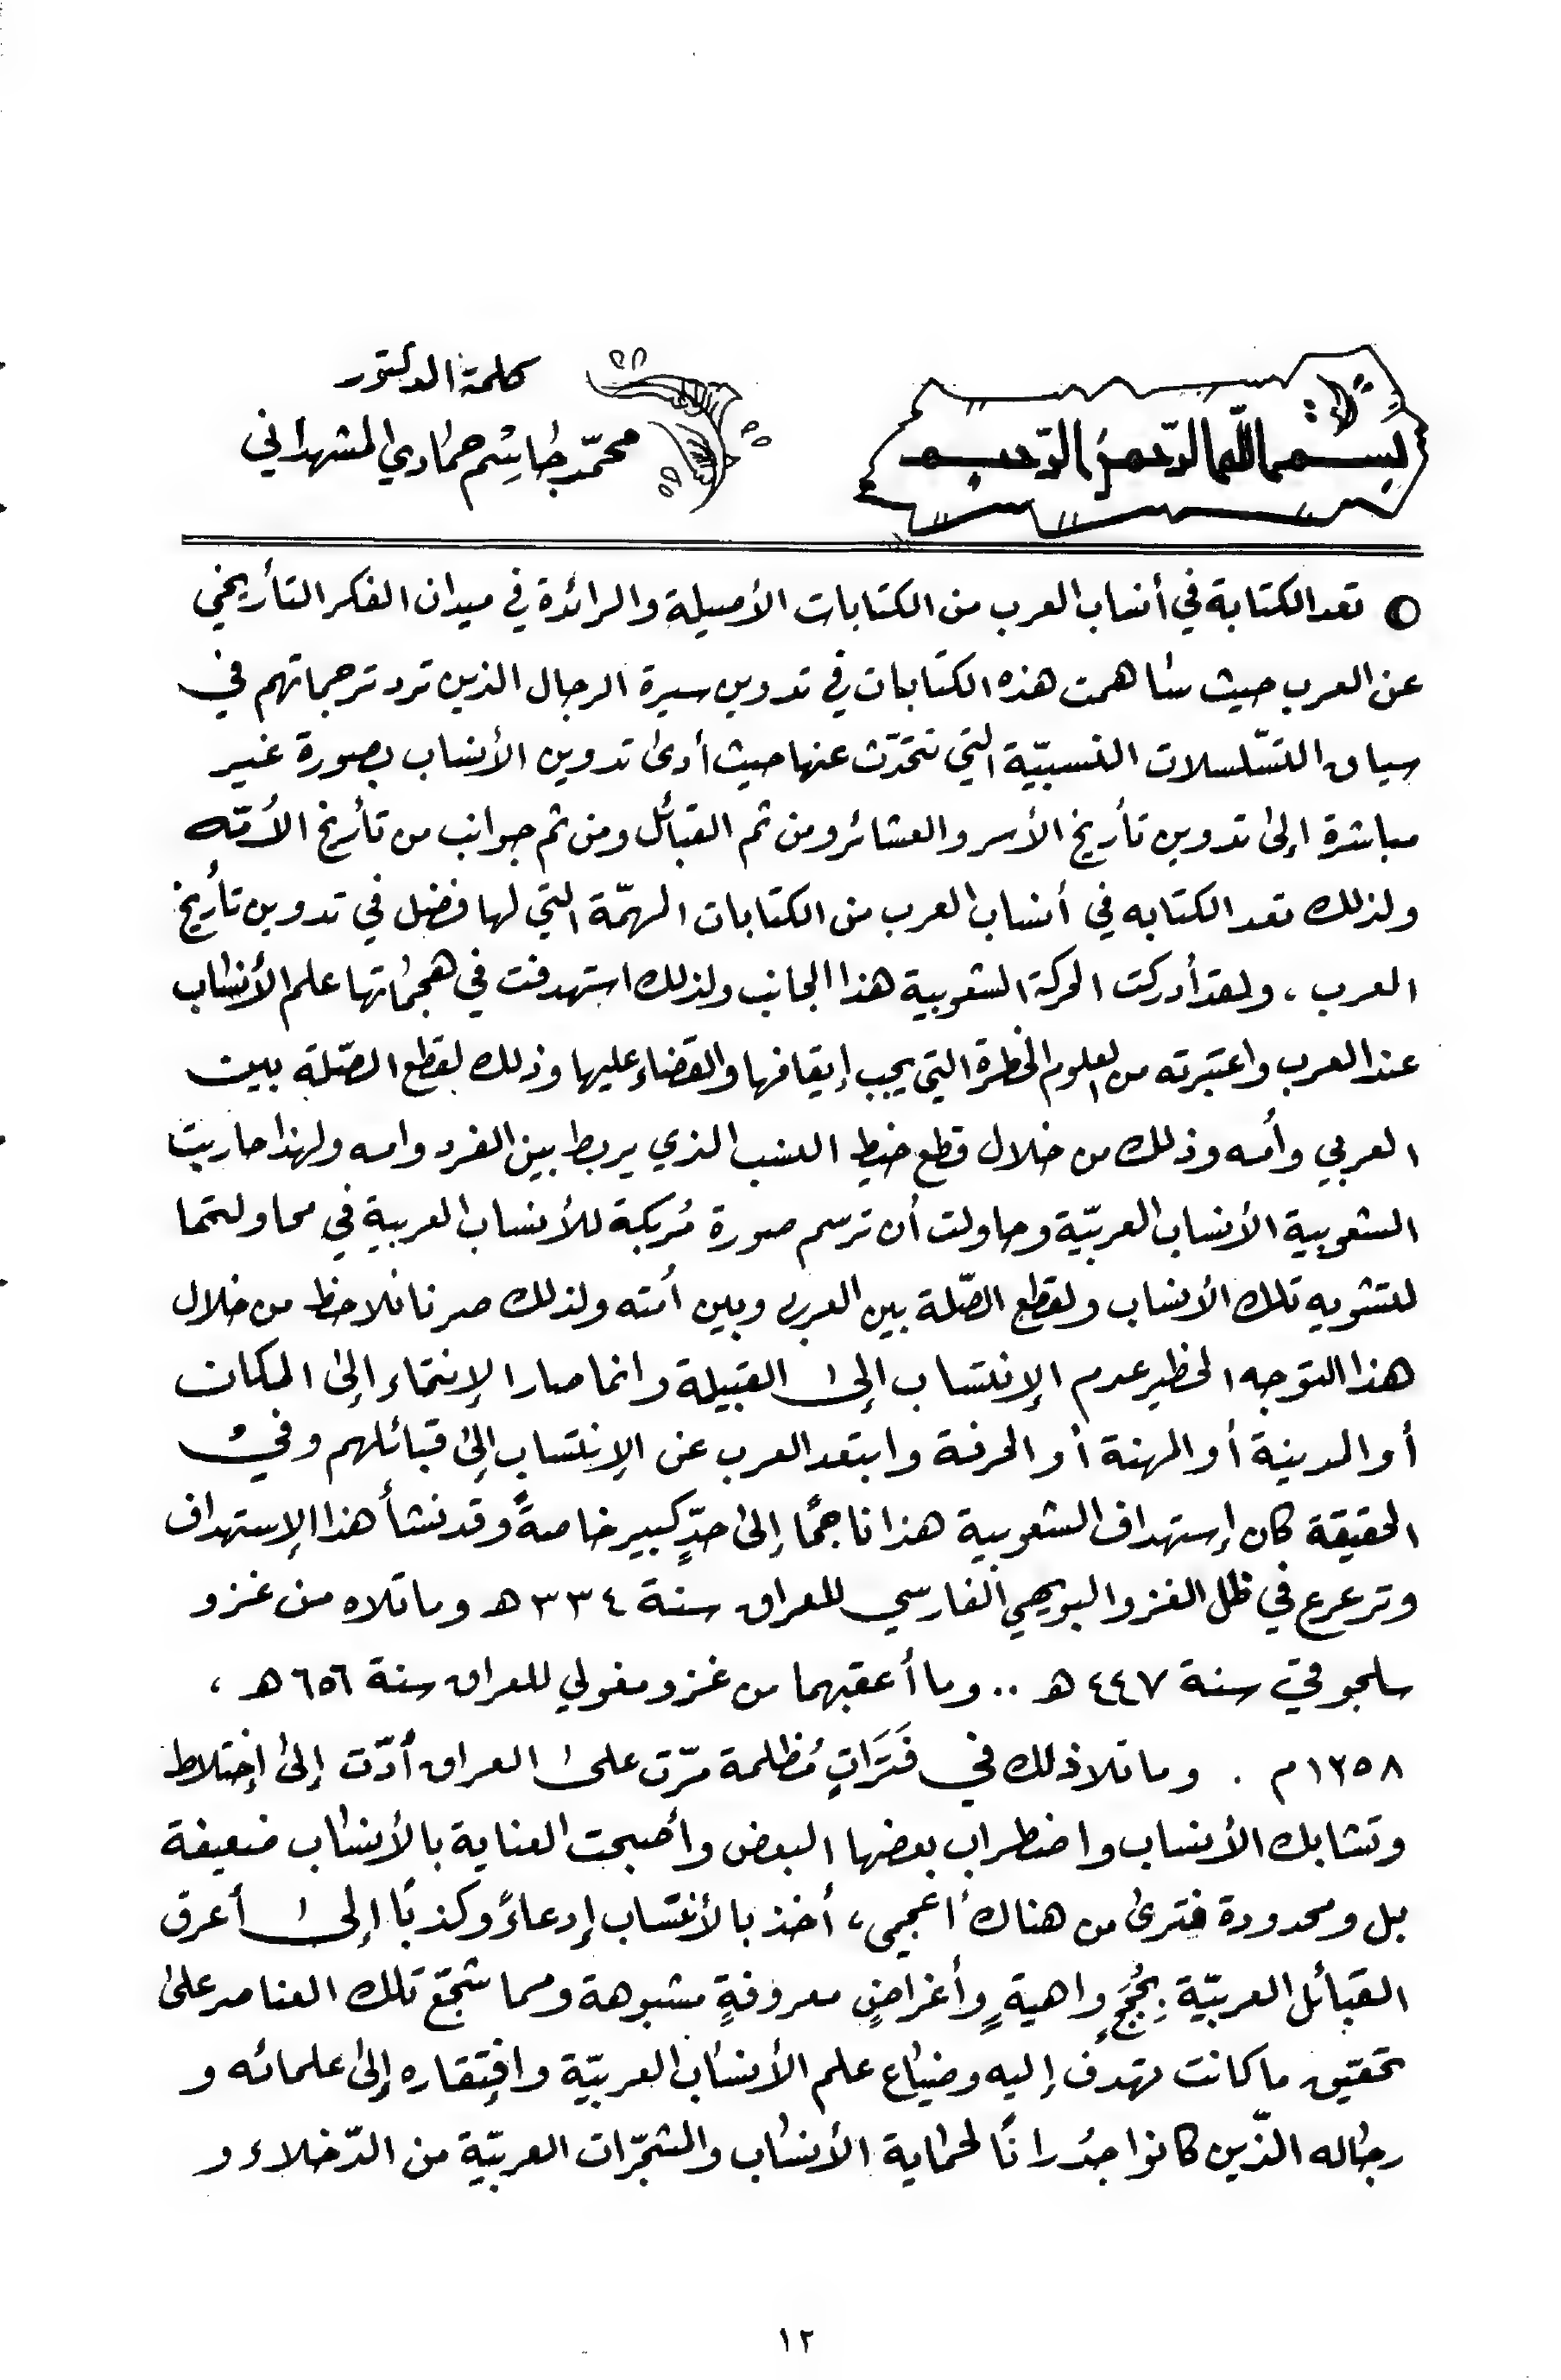 بسم الله الرحمن الرحيم
كلمة الدكتور
محمّد جاسم حمادي المشهداني
تعد الكتابة في أنساب العرب من الكتابات الأصيلة والرائدة في ميدان الفكر التأريخي
عن العرب حيث ساهمت هذه الكتابات في تدوين سيرة الرجال الذين ترد ترجماتهم في
سياق التسّلسلات النسبيّة التي تتحدّث عنها حيث أدى تدوين الأنساب بصورة غير
مباشرة إلى تدوين تأريخ الأسر والعشائر ومن ثم القبائل ومن ثم جوانب من تأريخ الأمّه
ولذلك تعد الكتابه في أنساب العرب من الكتابات المهمّة التي لها فضل في تدوين تأريخ
العرب ، ولقد أدركت الحركة الشعوبية هذا الجانب ولذلك استهدفت في هجماتها علم الأنساب
عند العرب واعتبرته من العلوم الخطرة التي يجب إيقافها والقضاء عليها وذلك لقطع الصّلة بين
العربي وأمه وذلك من خلال قطع خيط النسب الذي يربط بين الفرد وامه ولهذا حاربت
الشعوبية الأنساب العربيّة وحاولت أن ترسم صورة مُربكة للأنساب العربية في محاولتها
لتشويه تلك الأنساب ولقطع الصّلة بين العربي وبين أمته ولذلك صرنا نلاحظ من خلال
هذا التوجه الخطير عدم الإنتساب إلى القبيلة وانما صار الإنتماء إلى المكان
أو المدينة أو المهنة أو الحرفة وابتعد العرب عن الإنتساب إلى قبائلهم وفي
الحقيقة كان إستهداف الشعوبية هذا ناجحًا إلى حدٍّ كبير خاصةً وقد نشأ هذا الإستهداف
وترعرع في ظل الغزو البويهي الفارسي للعراق سنة ٣٣٤ هـ وما تلاه من غزو
سلجوقي سنة ٤٤٧ هـ .. وما أعقبهما من غزو مغولي للعراق سنة ٦٥٦ هـ ،
١٢٥٨م . وما تلا ذلك في فَتَرَاتٍ مُظلمة مرّت على العراق أدّت إلى إختلاط
وتشابك الأنساب واضطراب بعضها البعض وأصبحت العناية بالأنساب ضعيفة
بل ومحدودة فترى من هناك أعجمي ، أخذ بالأنتساب إدعاءً وكذبًا إلى أعرق
القبائل العربيّة بِحُجَجٍ واهيةٍ وأغراضٍ معروفةٍ مشبوهة ومما شجّع تلك العناصر على
تحقيق ما كانت تهدف إليه وضياع علم الأنساب العربيّة وافتقاره إلى علمائه و
رجاله الّذين كانوا جدُرانًا لحماية الأنساب والمشجّرات العربيّة من الدّخلاء و
١٢